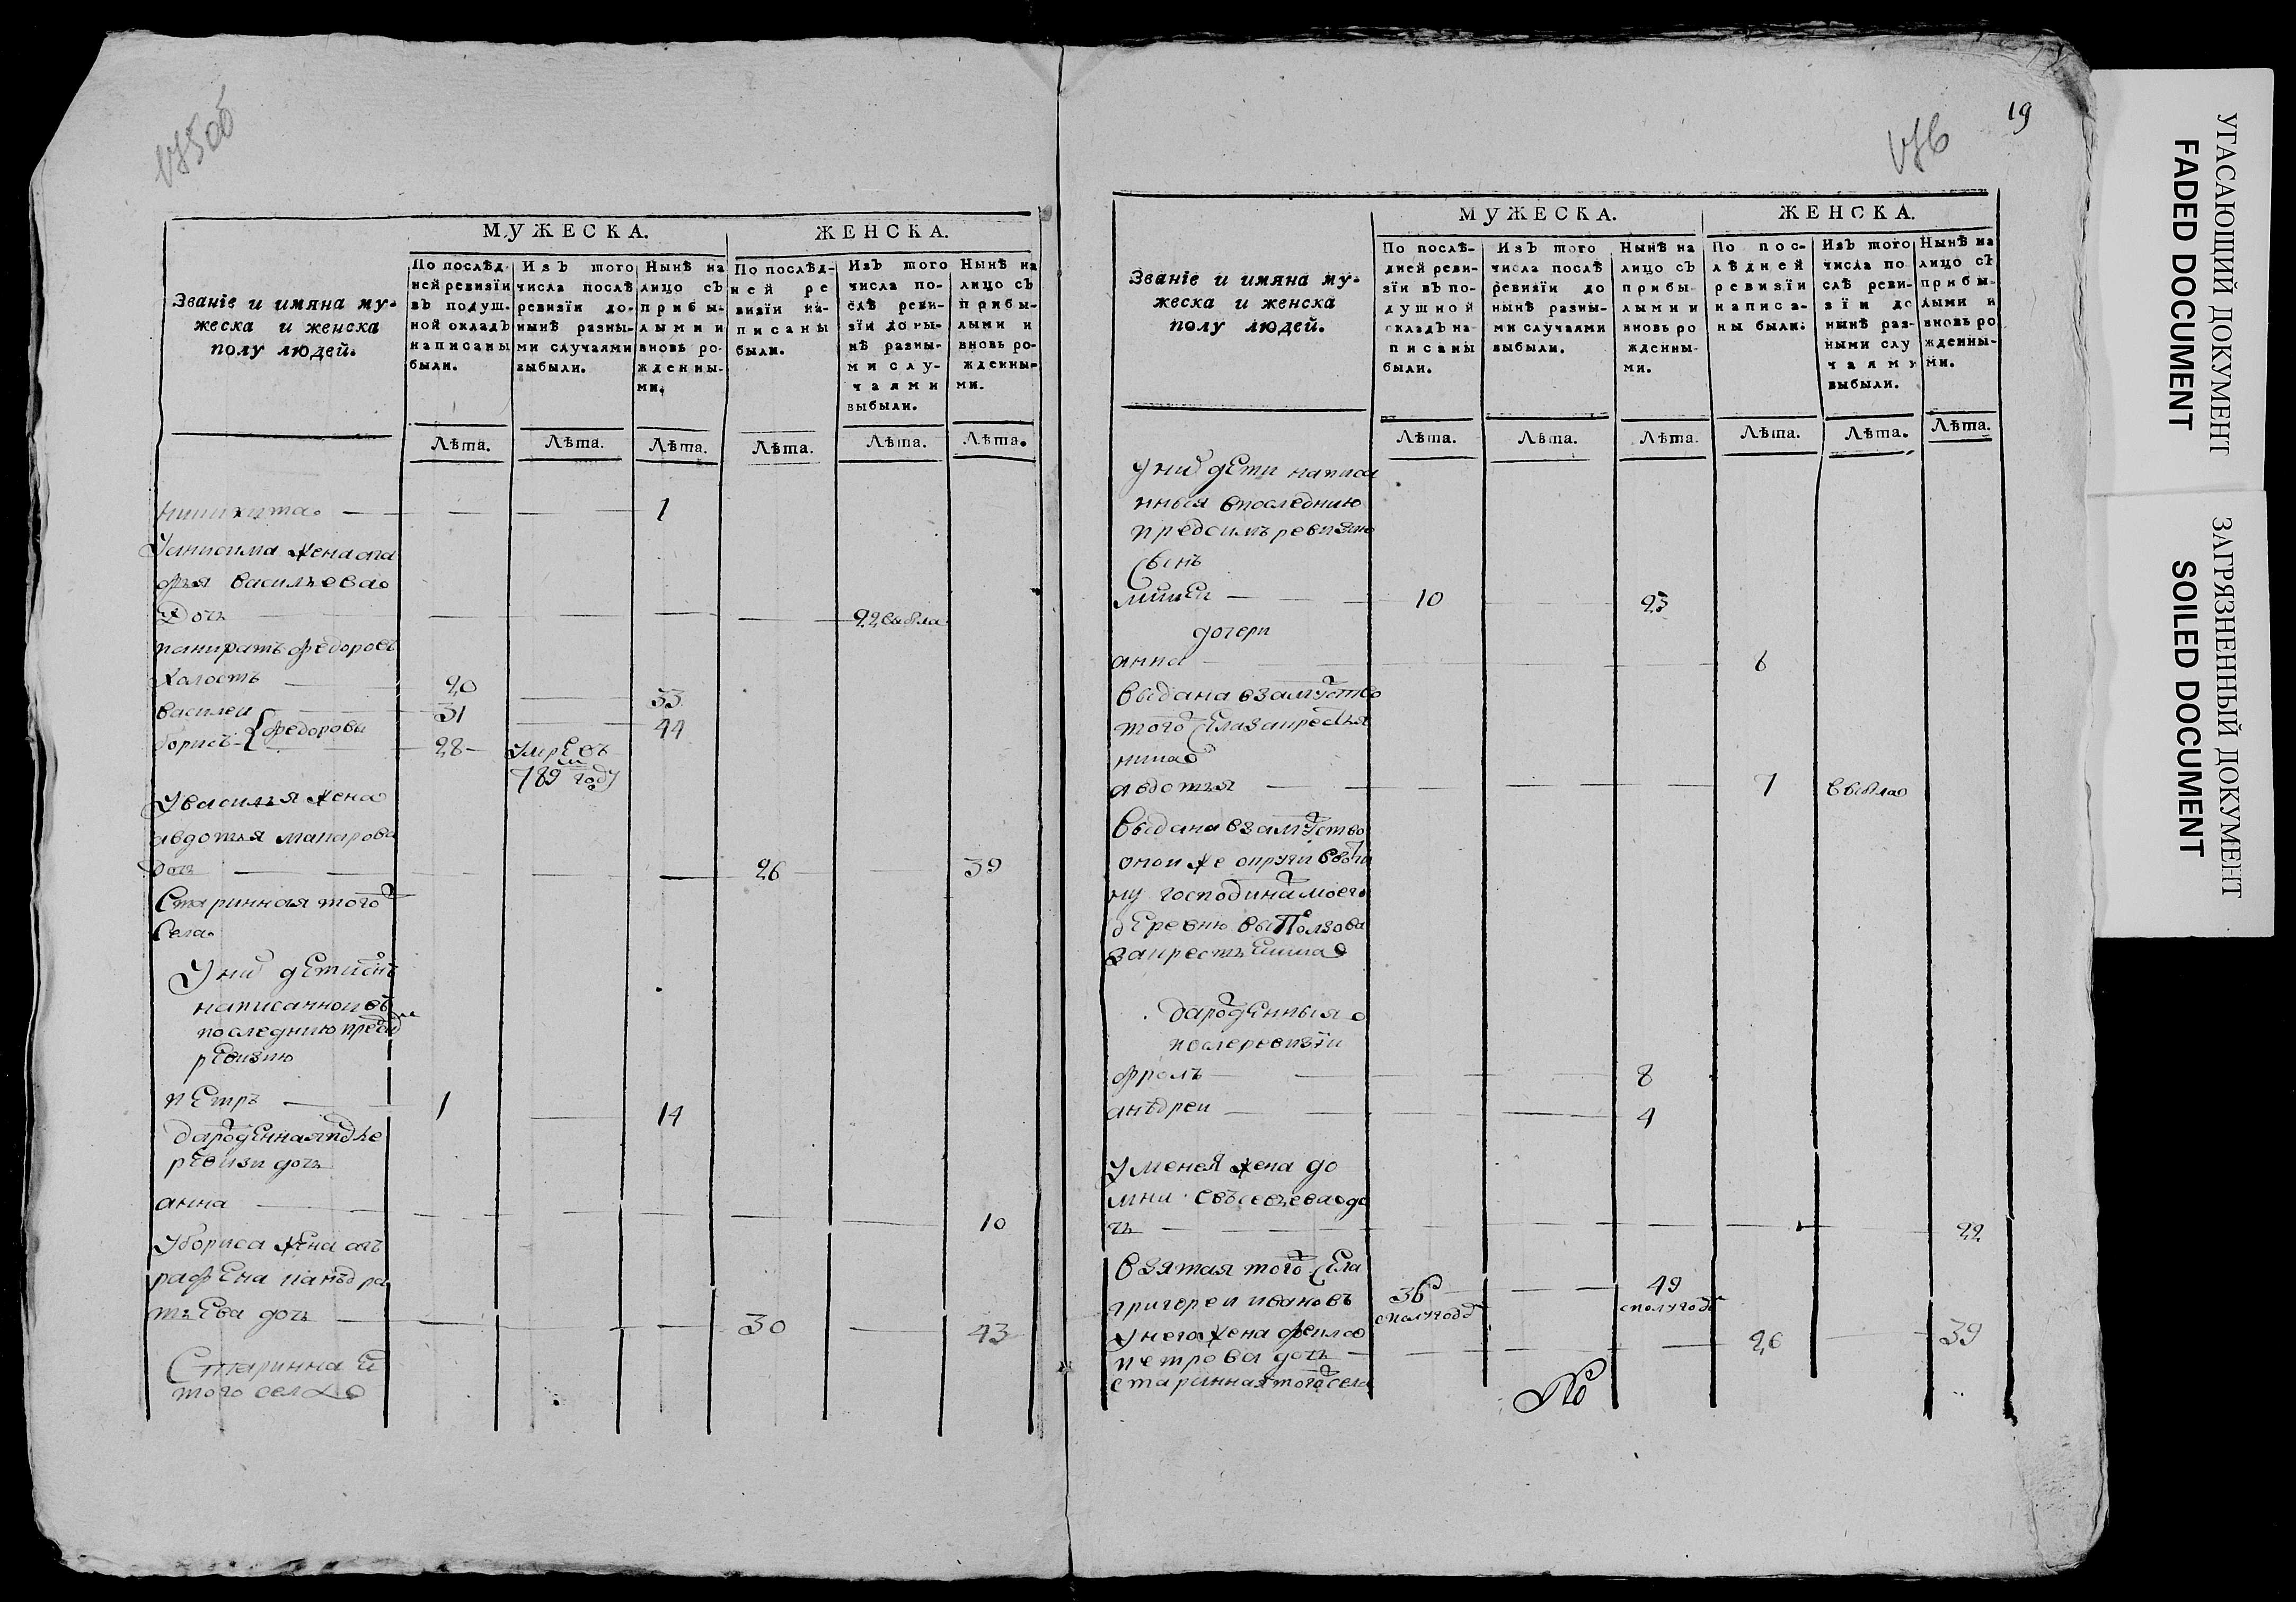 МУЖЕСКА.
ЖЕНСКА.
Званіе и имяна му-
жеска и женска
полу людей.
По послѣд-
ней ревизіи
въ подуш-
ной окладъ
написаны
были.
Изъ того
числа послѣ
ревизіи до-
нынѣ разны-
ми случаями
выбыли.
Нынѣ на
лицо съ
прибы-
лыми и
вновь ро-
жденны-
ми.
По послѣд-
ней ре
визіи на-
писаны
были.
Изъ того
числа по-
слѣ реви-
зіи до ны-
нѣ разны-
ми слу-
чаями
выбыли.
Нынѣ на
лицо съ
прибы-
лыми и
вновь ро-
жденны-
ми.
Лѣта. Лѣта. Лѣта. Лѣта. Лѣта. Лѣта.
никита 1
жена ога
фья васильева
Дочь 22 выбла
панкратъ федоровъ
Холостъ 20 33
василеи 31 44
борисъ федоровы 28 умре въ
789 м году
Увасилья жена
авдотья макарова
дочь 26 39
Старинная того
Села
У них дети сынъ
написанной въ
последнюю пред сим
ревизию
петръ 1 14
рожденная после
ревизи дочь
анна 10
Убориса жена аг
рафена панкъдра
тьева дочь 30 43
Старинная
того села
19
МУЖЕСКА.
ЖЕНСКА.
Званіе и имяна му-
жеска и женска
полу людей.
По послѣ-
дней реви-
зіи въ по-
душной
окладъ на-
писаны
были.
Изъ того
числа послѣ
ревизіи до
нынѣ разны-
ми случаями
выбыли.
Нынѣ на
лицо съ
прибы-
лыми и
вновь ро
жденны-
ми.
По пос-
лѣдней
ревизіи
написа-
ны были.
Изъ того
числа по
слѣ реви-
зіи до
нынѣ раз-
ными слу
чаями
выбыли.
Нынѣ на
лицо съ
прибы-
лыми и
вновь ро
жденны-
ми.
Лѣта. Лѣта. Лѣта. Лѣта. Лѣта. Лѣта.
у них дети написа
нныя впоследнию
предсимъ ревизию
Сынъ
10 23
дочери
анна 6
выдана взамужство
того села за кресть
янина
авдотья 7 выбла
Выдана взамужство
оной же округи в вотчи
ну господина моего
деревню
за крестьянина
рожденныя
после ревизіи
фролъ 8
анъдреи 4
жена до
мна евъсевьева до
чь 22
Взятая того села
григореи ивановъ 36 49
сполугодом сполугодом
Унего жена фекла
петрова дочь 26 39
старинная того села
По
УГАСАЮЩИЙ ДОКУМЕНТ
FADED DOCUMENT
ЗАГРЯЗНЕННЫЙ ДОКУМЕНТ
SOILED DOCUMENT